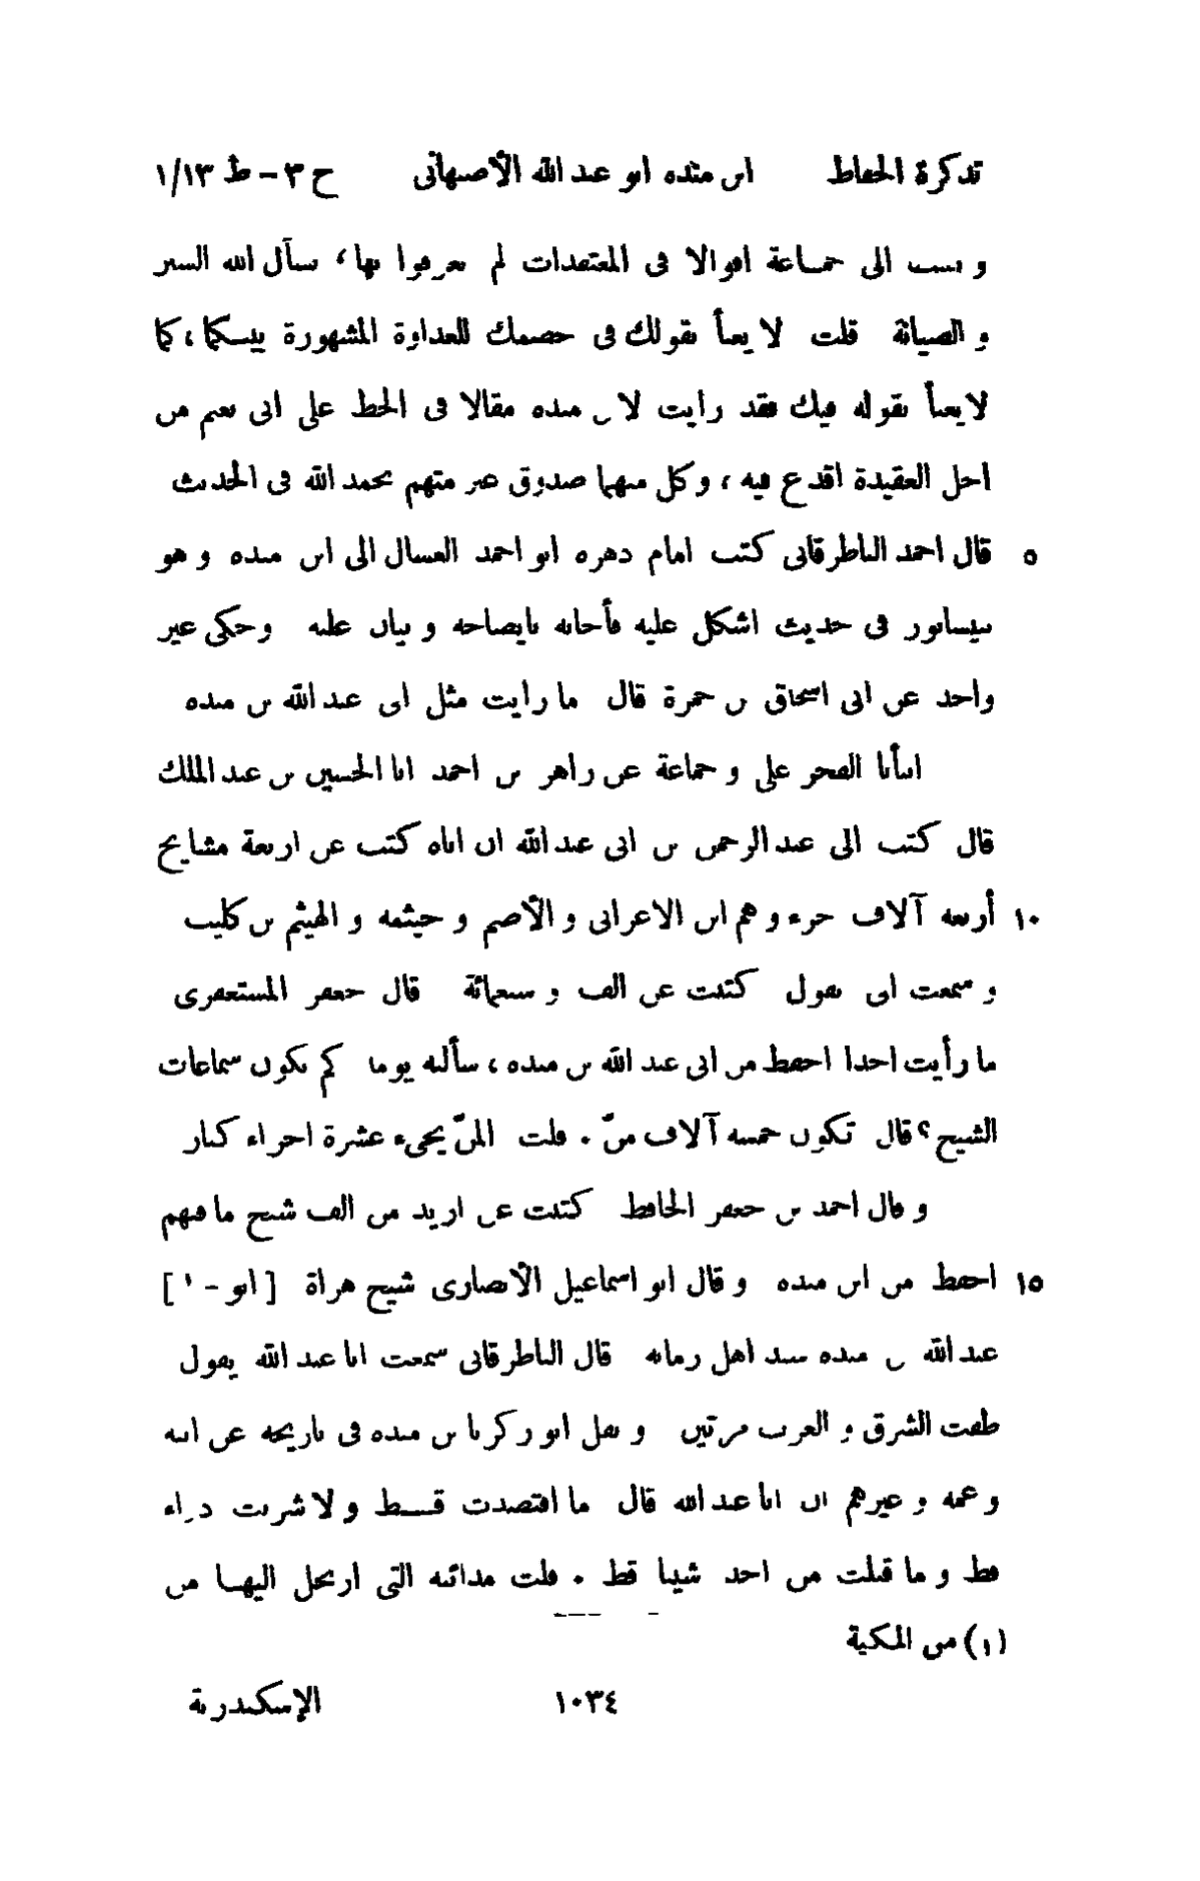 تذكرة الحفاظ ابن منده ابو عبد الله الأصبهانى ج ٣ - ط ١/١٣
و نسب الى جماعة اقوالا فى المعتقدات لم يعرفوا بها، نسأل الله الستر
و الصيانة قلت لا يعبأ بقولك فى خصمك للعداوة المشهورة بينكما، كما
لا يعبأ بقوله فيك فقد رايت لابن منده مقالا فى الحط على ابى نعيم من
اجل العقيدة اقذع فيه، وكل منهما صدوق غير متهم بحمد الله فى الحديث
٥ قال احمد الباطرقانى كتب امام دهره ابو احمد العسال الى ابن منده و هو
بنيسابور فى حديث اشكل عليه فأجابه بايضاحه و بيان علته وحكى غير
واحد عن ابى اسحاق بن حمزة قال ما رايت مثل ابى عبد الله بن منده
انبأنا الفخر على و جماعة عن زاهر بن احمد انا الحسين بن عبد الملك
قال كتب الى عبد الرحمن بن ابى عبد الله ان اباه كتب عن اربعة مشايخ
١٠ أربعه آلاف جزء و هم ابن الاعرابى و الأصم و خيثمه و الهيثم بن كليب
و سمعت ابى يقول كتبت عن الف و سبعمائة قال جعفر المستغفرى
ما رأيت احدا احفظ من ابى عبد الله بن منده، سألته يوما كم تكون سماعات
الشيخ؟ قال تكون خمسه آلاف منّ . قلت المنّ يجىء عشرة اجزاء كبار
و قال احمد بن جعفر الحافظ كتبت عن ازيد من الف شيخ ما فيهم
١٥ احفظ من ابن منده و قال ابو اسماعيل الأنصارى شيخ هراة [ ابو - ١ ]
عبد الله بن منده سيد اهل زمانه قال الباطرقانى سمعت ابا عبد الله يقول
طفت الشرق و الغرب مرتين و نقل ابو زكريا بن منده فى تاريخه عن ابيه
و عمه و غيرهم ان ابا عبد الله قال ما افتصدت قــط و لا شربت دواء
قط و ما قبلت من احد شيئا قط . قلت مدائنه التى ارتحل اليهـا من
(١) من المكية
١٠٣٤ الإسكندرية